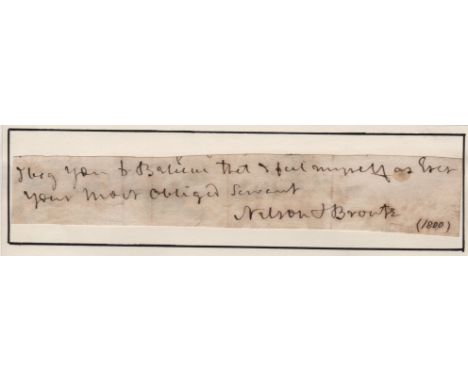 I beg you to Believe that I feel myself as Ever
your most obliged Servant
Nelson & Bronte
(1800)